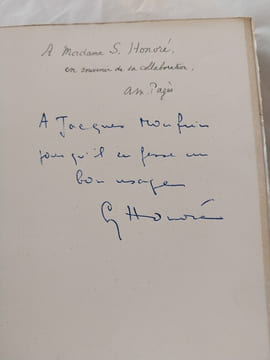 A Madame S. Honoré,
en souvenir de sa collaboration,
Am. Pagès
A Jacques Monfrin
pour qu'il en fasse un
bon usage
Honoré